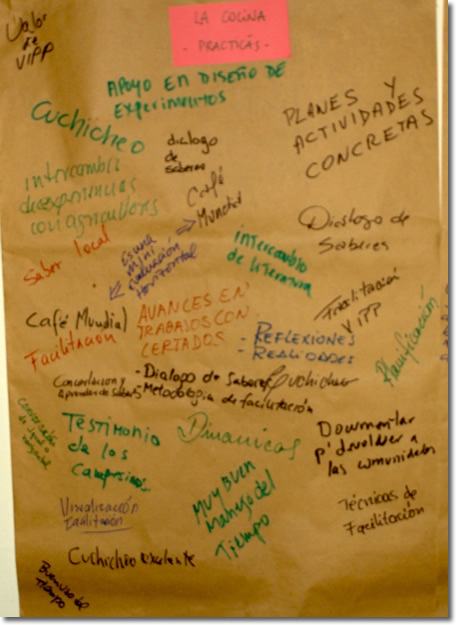 LA COCINA
- PRACTICAS -
Valor
de
VIPP
APOYO EN DISEÑO DE
Experimentos
Cuchicheo
dialogo
de
saberes
PLANES Y
ACTIVIDADES
CONCRETAS
Intercambio
de experiencias
con agricultores
Café
Mundial
Saber local
Es una
mini
evaluación
Horizontal
intercambio
de literatura
Dialogo de
Saberes
Café Mundial
Facilitación
AVANCES EN
TRABAJOS CON
CERTADOS
Facilitación
Y VIPP
- REFLEXIONES
- REALIDADES
Planificación
Concertacion y
- Dialogo de Saberes
- Metodologia de facilitación
Cuchicheo
TESTIMONIO
de los
Campesinos
Dinamicas
Documentar
p' devolver a
las comunidades
Visualización
Facilitación
MUY BUEN
Manejo del
Tiempo
Técnicas de
Facilitación
Cuchicheo excelente
Buen uso del
Tiempo